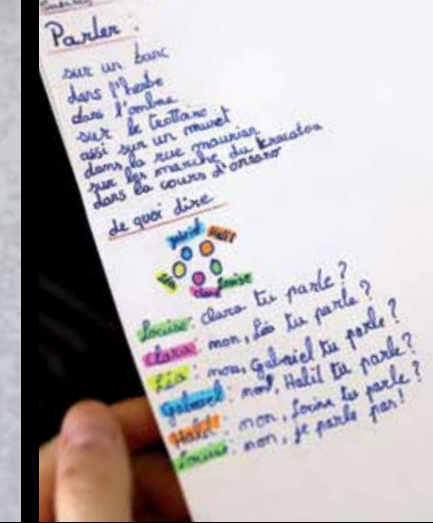 Parler :
sur un banc
dans l'herbe
dans l'ombre
sur le trottoire
assi sur un muret
dans la rue maurian
sur les marche du kracatoa
dans la cours d'onsano
de quoi dire
gabriel Halil
Léa Louise
clara
Louise : Clara tu parle ?
Clara : non, Léa tu parle ?
Léa : non, Gabriel tu parle ?
Gabriel : non, Halil tu parle ?
Halil : non, Louise tu parle ?
Louise : non, je parle pas !